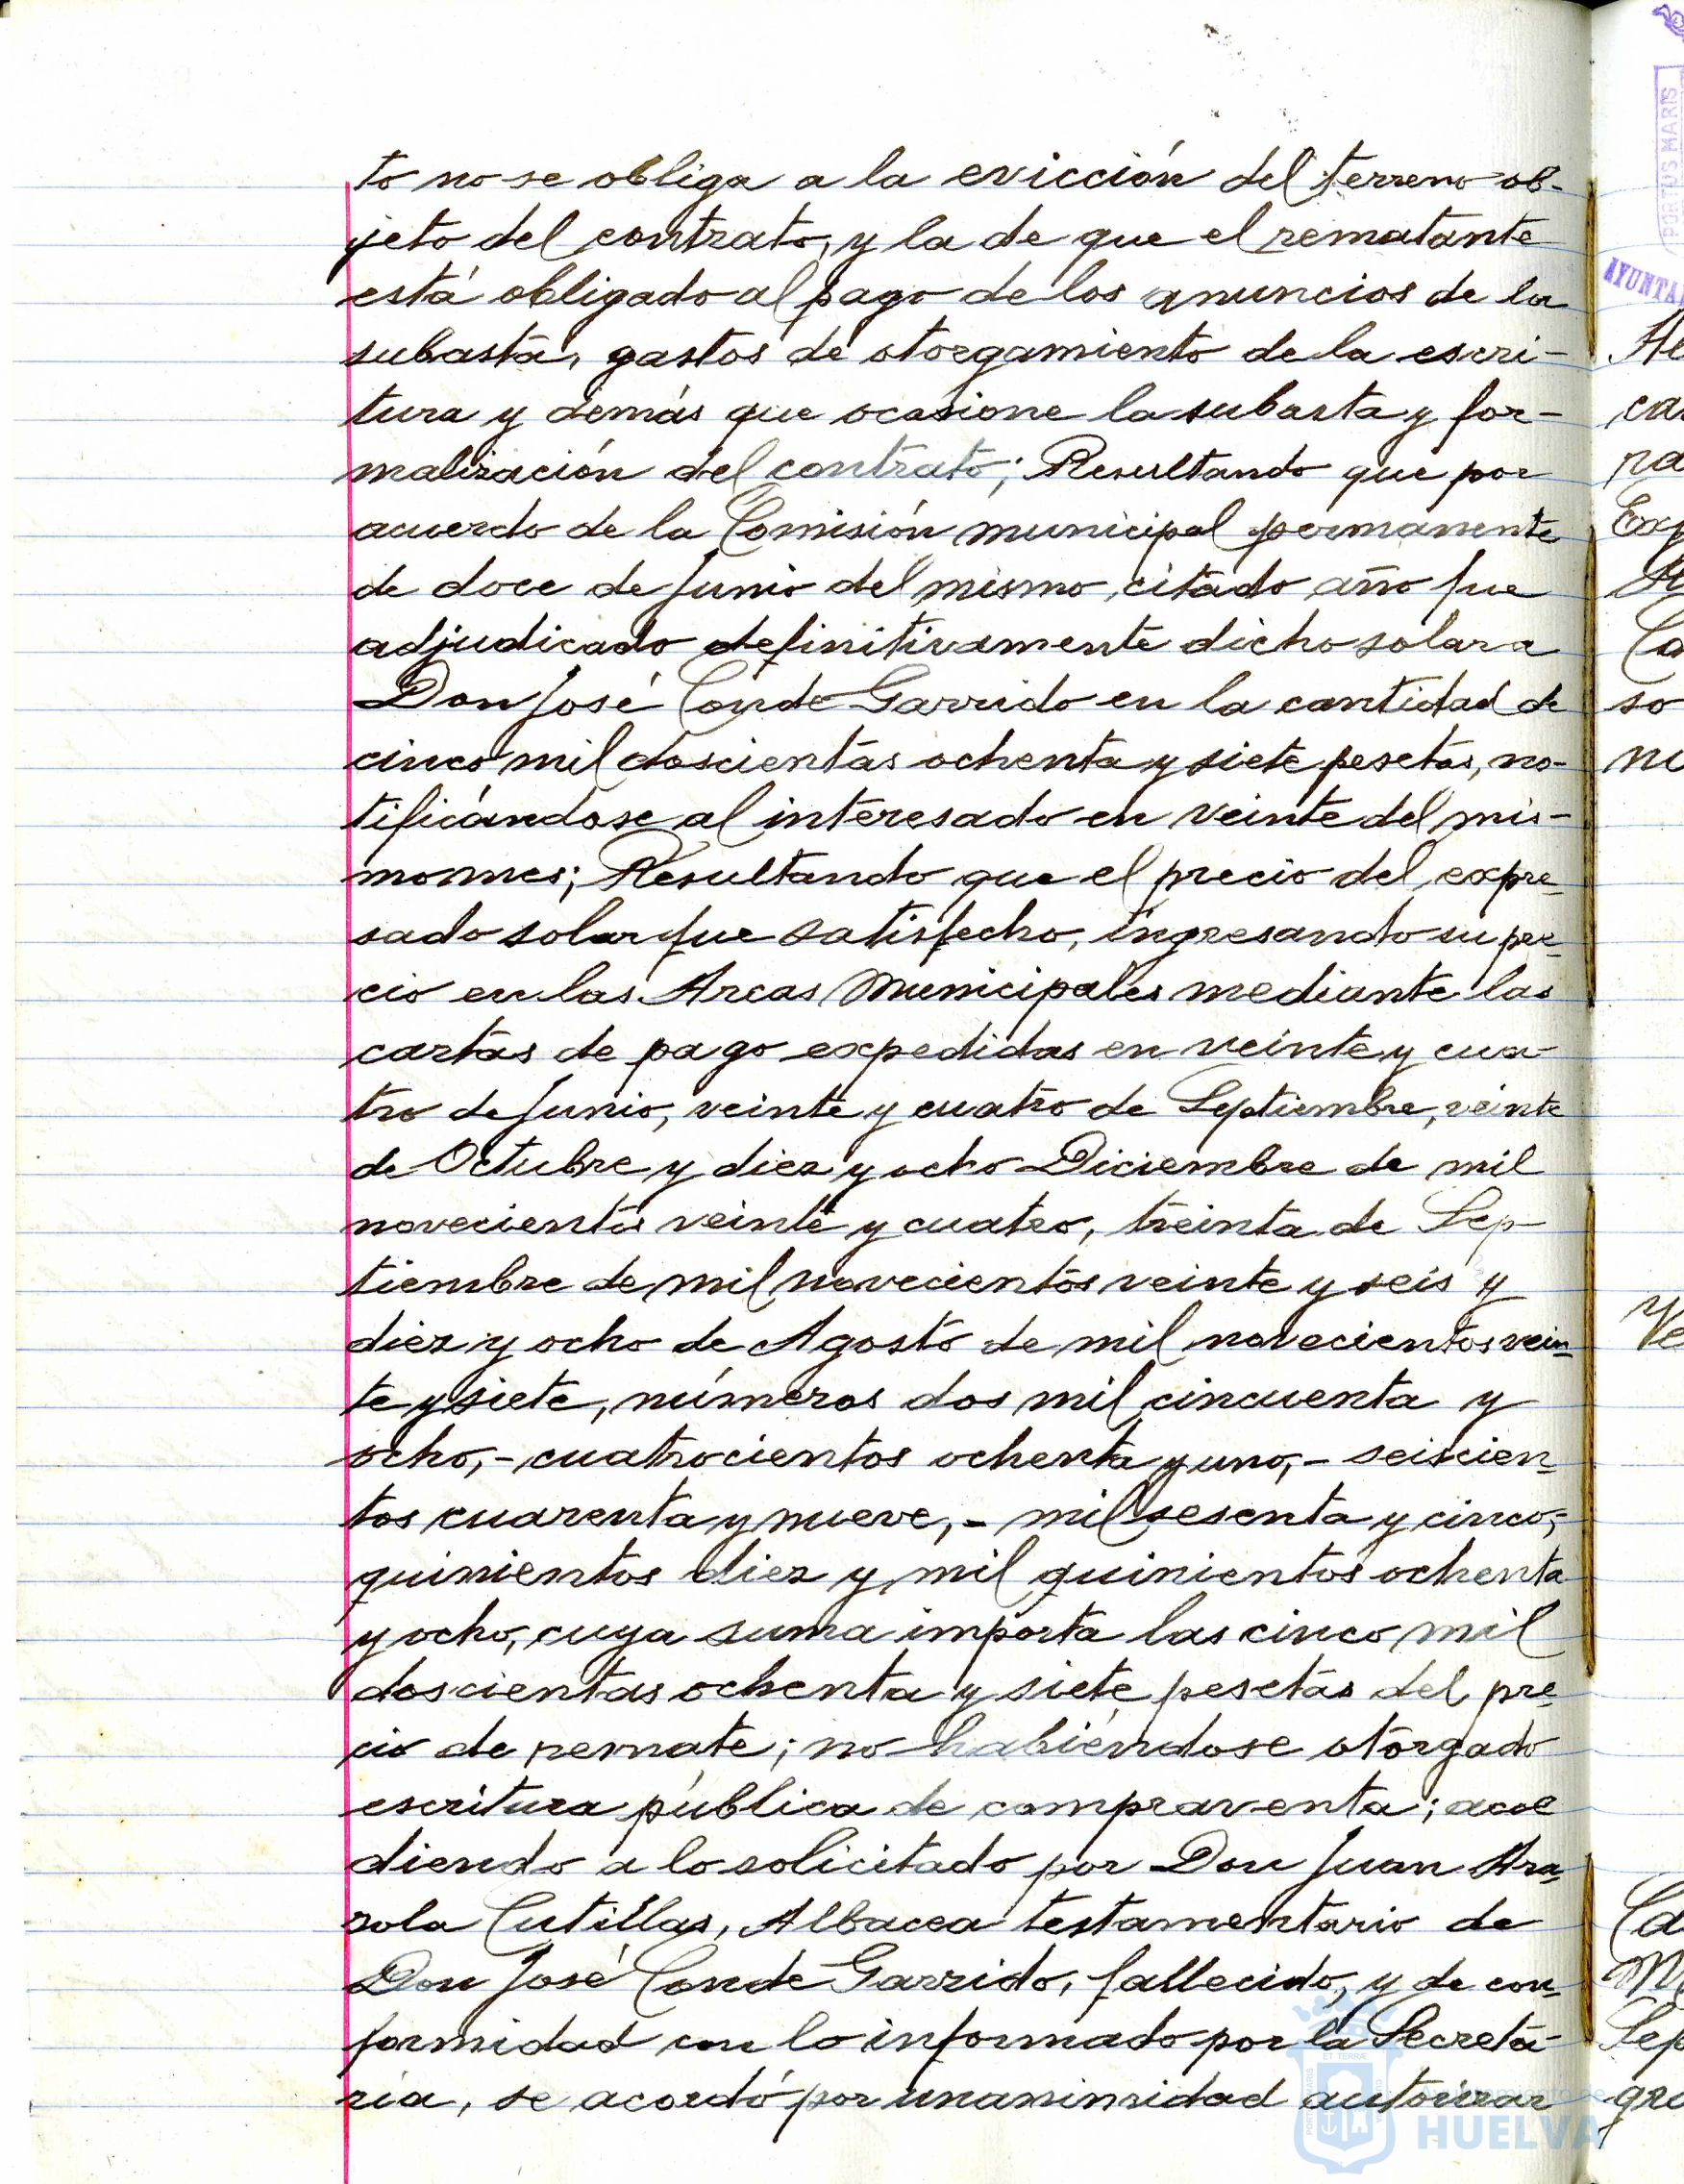 to no se obliga a la evicción del terreno ob-
jeto del contrato, y la de que el rematante
está obligado al pago de los anuncios de la
subasta, gastos de otorgamiento de la escri-
tura y demás que ocasione la subasta y for-
malización del contrato; Resultando que por
acuerdo de la Comisión municipal permanente
de doce de Junio del mismo citado año fue
adjudicado definitivamente dicho solar a
Don José Conde Garrido en la cantidad de
cinco mil doscientas ochenta y siete pesetas, no-
tificándose al interesado en veinte del mis-
mo mes; Resultando que el precio del expre-
sado solar fue satisfecho, ingresando su pre-
cio en las Arcas Municipales mediante las
cartas de pago expedidas en veinte y cua-
tro de Junio, veinte y cuatro de Septiembre, veinte
de Octubre y diez y ocho Diciembre de mil
novecientos veinte y cuatro, treinta de Sep-
tiembre de mil novecientos veinte y seis y
diez y ocho de Agosto de mil novecientos vein-
te y siete, números dos mil cincuenta y
ocho,- cuatrocientos ochenta y uno,- seiscien-
tos cuarenta y nueve,- mil sesenta y cinco,-
quinientos diez y mil quinientos ochenta
y ocho, cuya suma importa las cinco mil
doscientas ochenta y siete pesetas del pre-
cio de remate; no habiéndose otorgado
escritura pública de compraventa; acce
diendo a lo solicitado por Don Juan Ara-
zola Cutillas, Albacea testamentario de
Don José Conde Garrido, fallecido, y de con-
formidad con lo informado por la Secreta-
ría, se acordó por unanimidad autorizar
PORTUS MARIS
AYUNTA
HUELVA